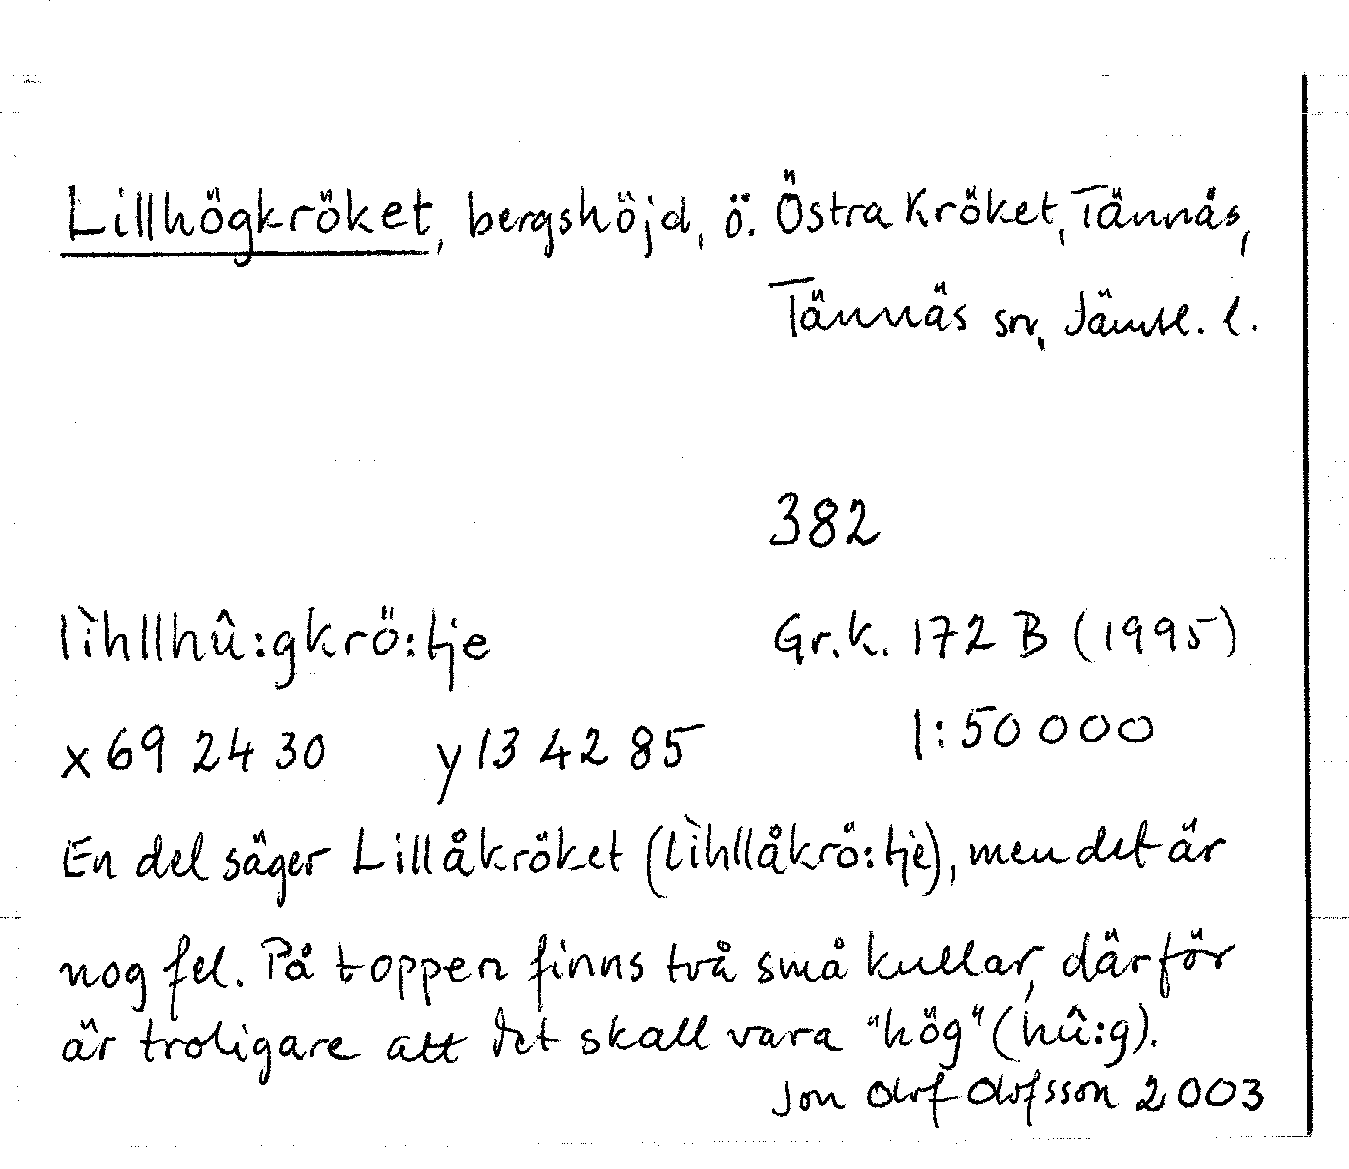 Lillhögkröket, bergshöjd, ö. Östra Kröket, Tännäs,
Tännäs sn, Jämtl. l.
382
lìhllhû:gkrö:tje Gr.k. 172 B (1995)
x 69 24 30 y 13 42 85 1:50 000
En del säger Lillåkröket (lìhllåkrö:tje), men det är
nog fel. På toppen finns två små kullar, därför
är troligare att det skall vara "hög" (hû:g).
Jon Olof Olofsson 2003